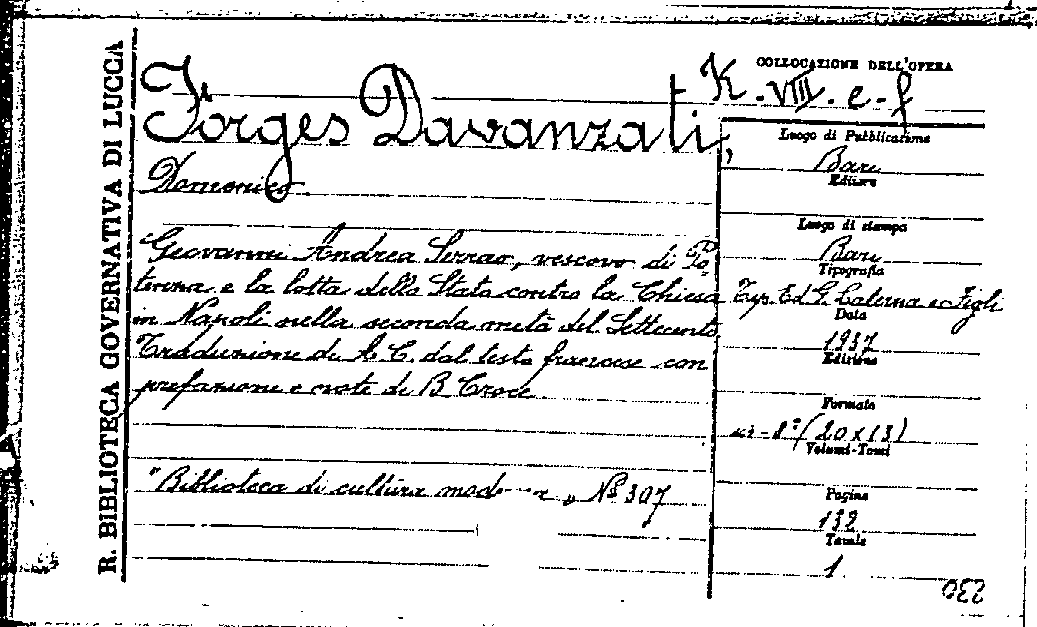 R. BIBLIOTECA GOVERNATIVA DI LUCCA
Forges Davanzati,
Domenico
Giovanni Andrea Serrao, vescovo di Po,
tenza e la lotta dello Stato contro la Chiesa
in Napoli nella seconda metà del Settecento
Traduzione di A. C. dal testo francese con
prefazione e note di B. Croce
"Biblioteca di cultura mod a „ No 307
COLLOCAZIONE DELL'OPERA
K. VIII. e-f
Luogo di Pubblicazione
Bari
Editore
Luogo di stampa
Bari
Tipografia
Tip. Ed. G. Laterza e Figli
Data
1937
Edizione
Formato
in-8° (20x13)
Volumi-Tomi
Pagine
132
Tavole
1
230